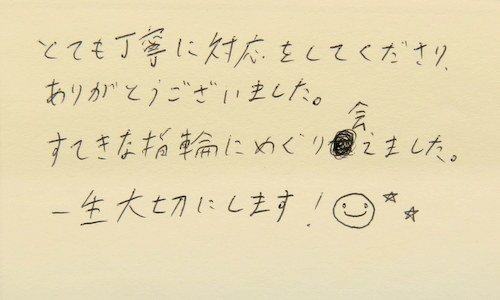 とても丁寧に対応をしてくださり、
ありがとうございました。
すてきな指輪にめぐり会えました。
一生大切にします！